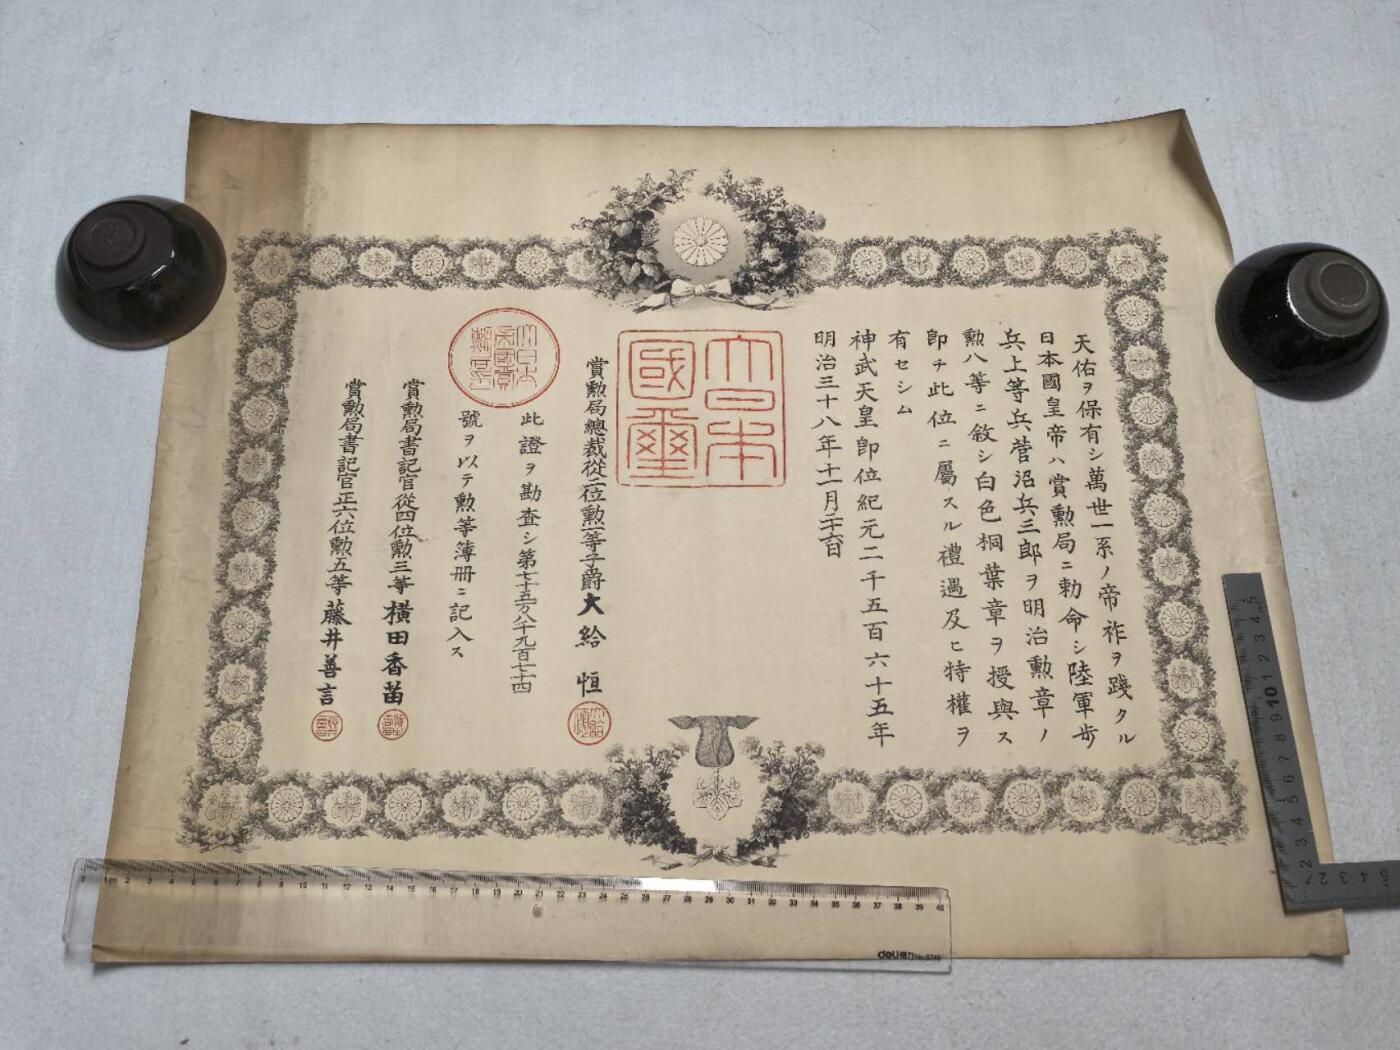 天佑ヲ保有シ萬世一系ノ帝祚ヲ踐タル
日本國皇帝ハ賞勲局ニ勅命シ陸軍歩
兵上等兵菅沼兵三郎ヲ明治勲章ノ
勲八等ニ敘シ白色桐葉章ヲ授與ス
即チ此位ニ屬スル禮遇及ヒ特權ヲ
有セシム
神武天皇即位紀元二千五百六十五年
明治三十八年十一月
大日本
國璽
賞勲局總裁從二位勲一等子爵大給恒
此證ヲ勘査シ第七十五万八千九百七十四
號ヲ以テ勲等簿冊ニ記入ス
賞勲局書記官從四位勲三等横田香苗
賞勲局書記官正六位勲五等藤井善言
deli得力 No.6240
0 1cm 2 3 4 5 6 7 8 9 10 11 12 13 14 15 16 17 18 19 20 21 22 23 24 25 26 27 28 29 30 31 32 33 34 35 36 37 38 39 40